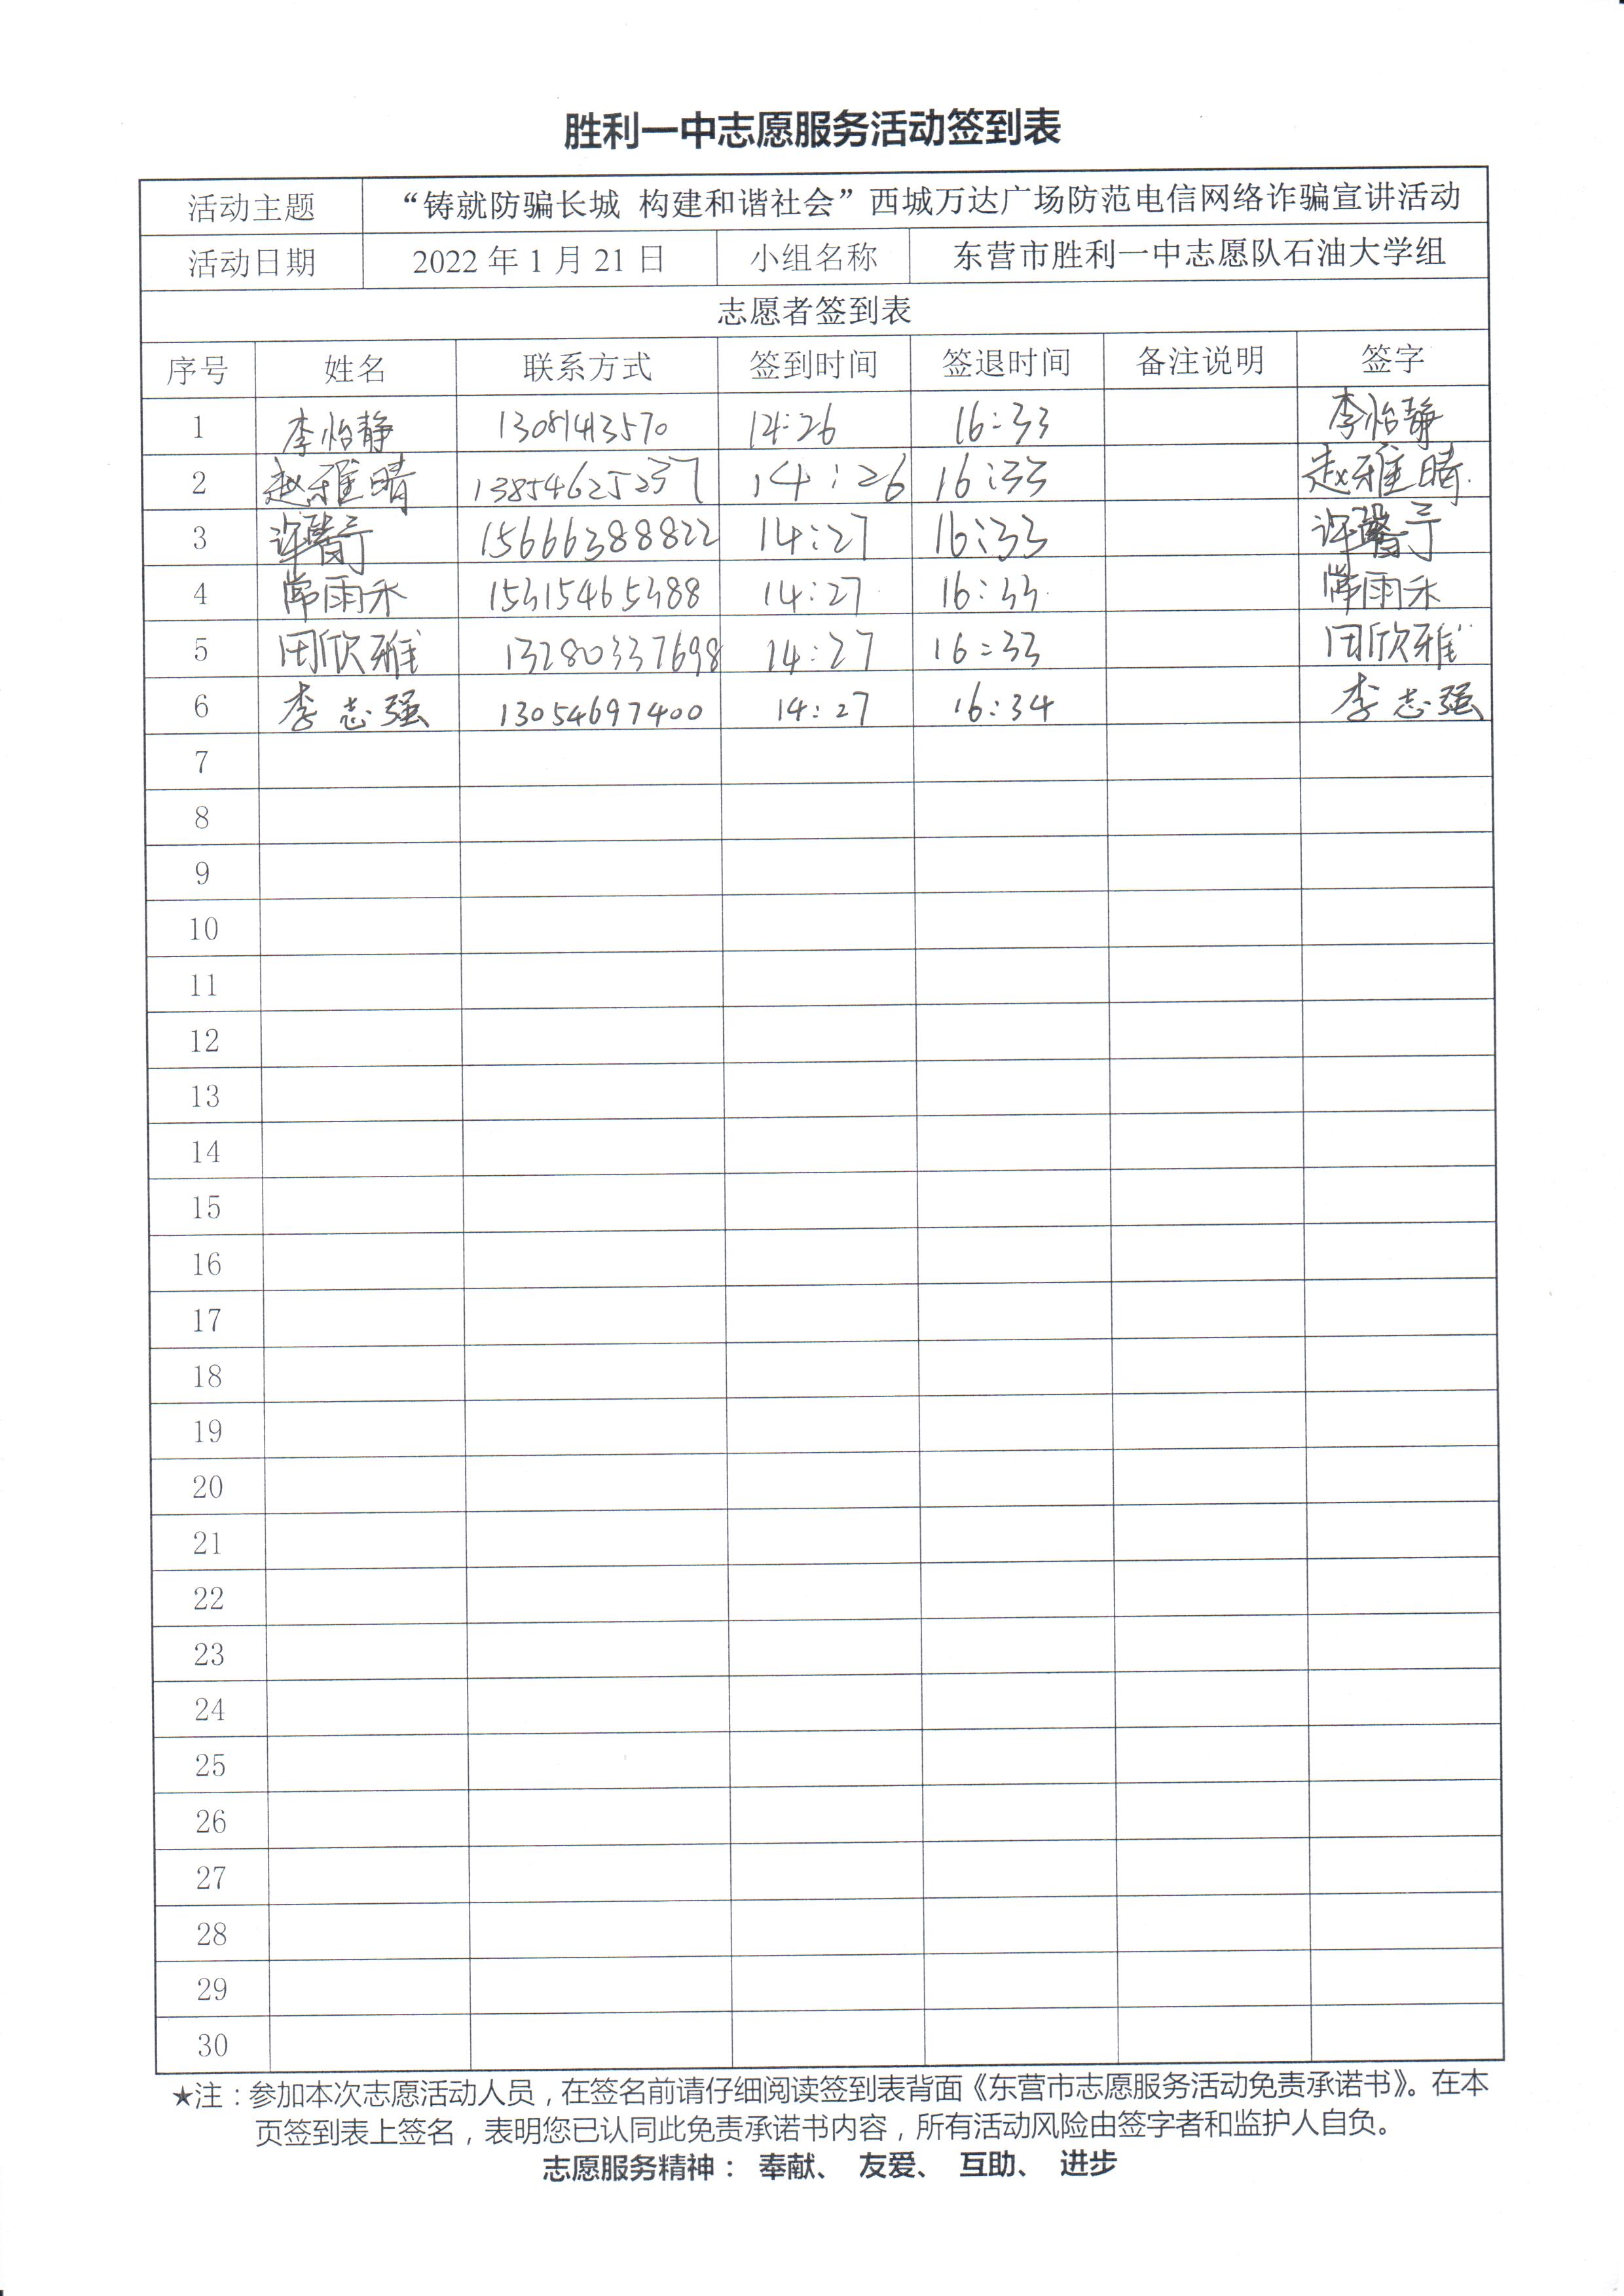 胜利一中志愿服务活动签到表
活动主题 “铸就防骗长城 构建和谐社会”西城万达广场防范电信网络诈骗宣讲活动
活动日期 2022 年 1 月 21 日 小组名称 东营市胜利一中志愿队石油大学组
志愿者签到表
序号 姓名 联系方式 签到时间 签退时间 备注说明 签字
1 李怡静 14:26 16:33 李怡静
2 赵雅晴 13854625237 14:26 16:33 赵雅晴
3 许馨予 15666388822 14:27 16:33 许馨予
4 常雨禾 15315465388 14:27 16:33 常雨禾
5 田欣雅 13280337698 14:27 16:33 田欣雅
6 李志强 13054697400 14:27 16:34 李志强
7
8
9
10
11
12
13
14
15
16
17
18
19
20
21
22
23
24
25
26
27
28
29
30
★注：参加本次志愿活动人员，在签名前请仔细阅读签到表背面《东营市志愿服务活动免责承诺书》。在本
页签到表上签名，表明您已认同此免责承诺书内容，所有活动风险由签字者和监护人自负。
志愿服务精神： 奉献、 友爱、 互助、 进步